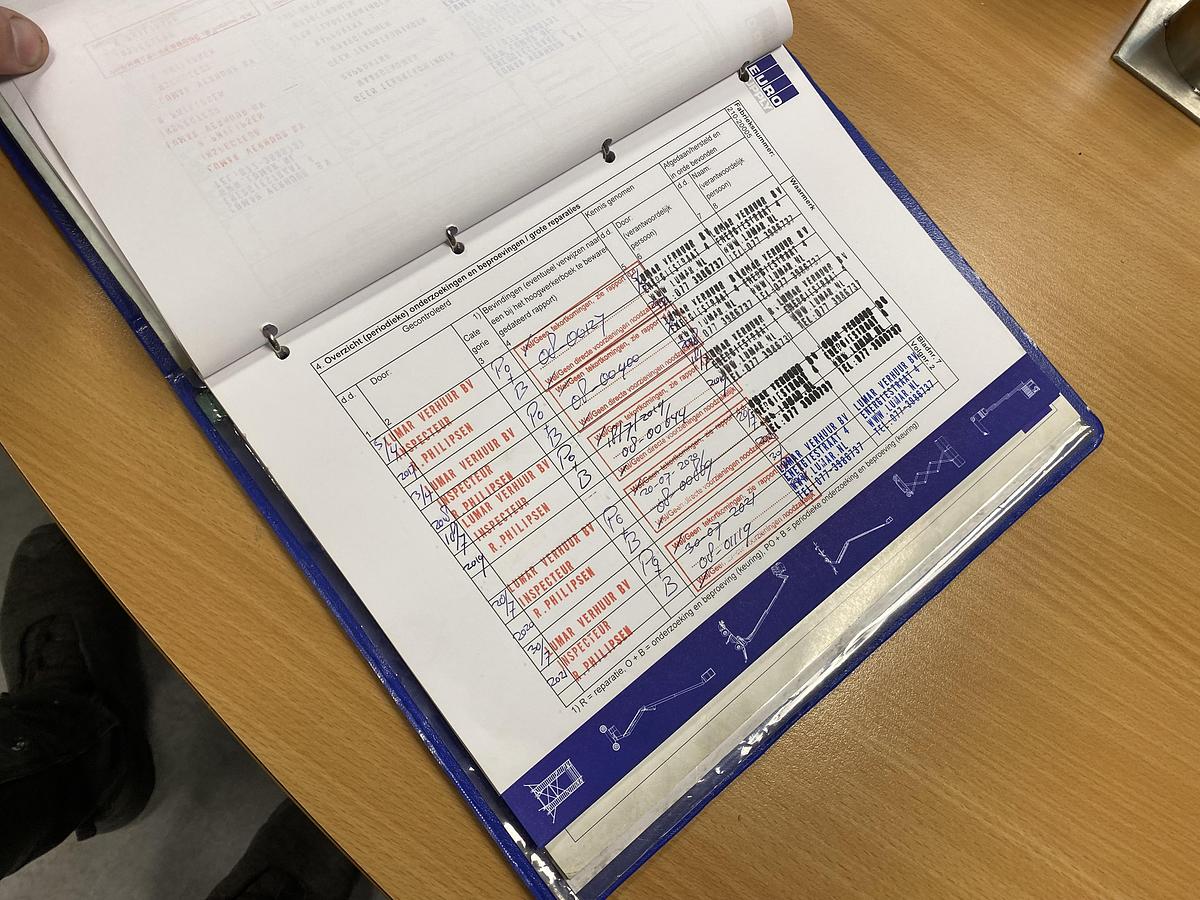 EURO
SUPPLY
Fabrieksnummer:
210-20005
Waarmerk
Bladnr. 7
Volgnr. 2
4. Overzicht (periodieke) onderzoekingen en beproevingen / grote reparaties
Gecontroleerd
d.d.
Door:
Cate
gorie
1)
Bevindingen (eventueel verwijzen naar
een bij het hoogwerkerboek te bewaren
gedateerd rapport)
Kennis genomen
d.d.
Door:
(verantwoordelijk
persoon)
Afgedaan/hersteld en
in orde bevonden
d.d.
Naam:
(verantwoordelijk
persoon)
1 2 3 4 5 6 7 8
5/4
2017
LUMAR VERHUUR BV
INSPECTEUR
R. PHILIPSEN
PO
+
B
Wel/Geen tekortkomingen, zie rapport
08-00127
Wel/Geen directe voorzieningen noodzakelijk
LUMAR VERHUUR BV
ENERGIESTRAAT 4
WWW.LUMAR.NL
TEL.077-3986737
LUMAR VERHUUR BV
ENERGIESTRAAT 4
WWW.LUMAR.NL
TEL.077-3986737
13/4
LUMAR VERHUUR BV
INSPECTEUR
R. PHILIPSEN
PO
+
B
Wel/Geen tekortkomingen, zie rapport
08-00400
Wel/Geen directe voorzieningen noodzakelijk
LUMAR VERHUUR BV
ENERGIESTRAAT 4
WWW.LUMAR.NL
TEL.077-3986737
LUMAR VERHUUR BV
ENERGIESTRAAT 4
WWW.LUMAR.NL
TEL.077-3986737
18/7
2019
LUMAR VERHUUR BV
INSPECTEUR
R. PHILIPSEN
PO
+
B
Wel/Geen tekortkomingen, zie rapport
18/7/2019
08-00644
Wel/Geen directe voorzieningen noodzakelijk
20/7
2020
LUMAR VERHUUR BV
INSPECTEUR
R. PHILIPSEN
PO
+
B
20-07-2020
Wel/Geen directe voorzieningen noodzakelijk
30/7
2021
LUMAR VERHUUR BV
INSPECTEUR
R. PHILIPSEN
PO
+
B
Wel/Geen tekortkomingen, zie rapport
30-07-2021
08-01119
LUMAR VERHUUR BV
ENERGIESTRAAT 4
WWW.LUMAR.NL
TEL.077-3986737
LUMAR VERHUUR BV
ENERGIESTRAAT 4
WWW.LUMAR.NL
TEL.077-3986737
1) R = reparatie, O + B = onderzoeking en beproeving (keuring), PO + B = periodieke onderzoeking en beproeving (keuring)